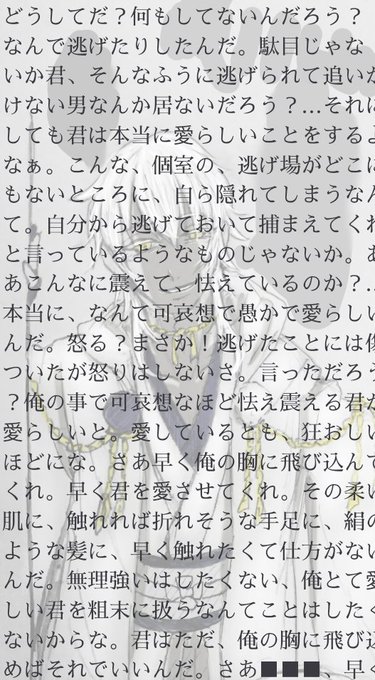 どうしてだ？何もしてないんだろう？
なんで逃げたりしたんだ。駄目じゃな
いか君、そんなふうに逃げられて追いか
けない男なんか居ないだろう？…それに
しても君は本当に愛らしいことをするよ
なぁ。こんな、個室の、逃げ場がどこに
もないところに、自ら隠れてしまうなん
て。自分から逃げておいて捕まえてくれ
と言っているようなものじゃないか。あ
あこんなに震えて、怯えているのか？…
本当に、なんて可哀想で愚かで愛らしい
んだ。怒る？まさか！逃げたことには傷
ついたが怒りはしないさ。言っただろう
？俺の事で可哀想なほど怯え震える君が
愛らしいと。愛しているとも、狂おしい
ほどにな。さあ早く俺の胸に飛び込んで
くれ。早く君を愛させてくれ。その柔い
肌に、触れれば折れそうな手足に、絹の
ような髪に、早く触れたくて仕方がない
んだ。無理強いはしたくない、俺とて愛
しい君を粗末に扱うなんてことはしたく
ないからな。君はただ、俺の胸に飛び込
めばそれでいいんだ。さあ■■■、早く